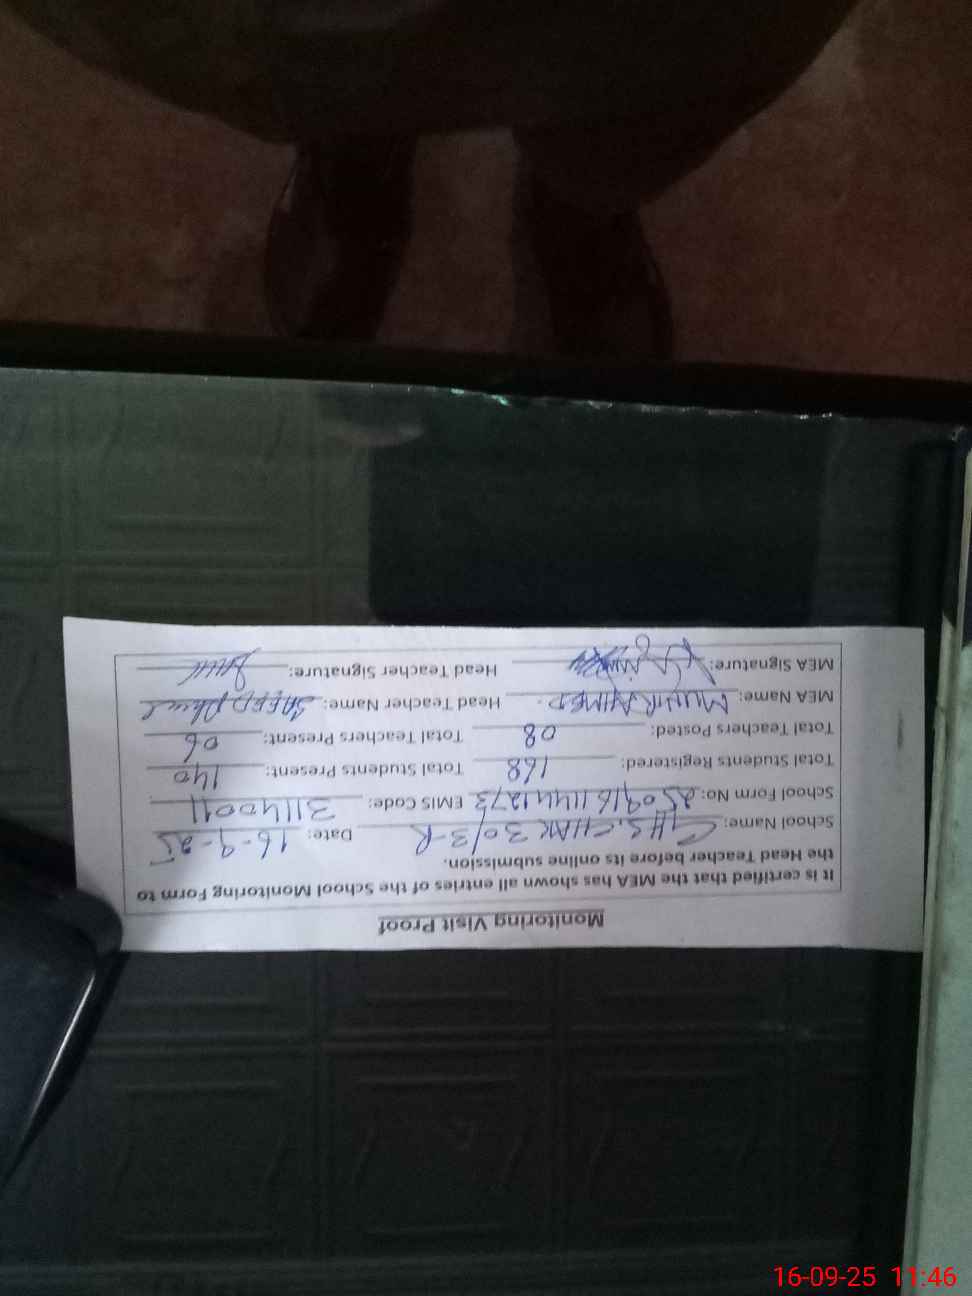 Monitoring Visit Proof
It is certified that the MEA has shown all entries of the School Monitoring Form to
the Head Teacher before its online submission.
School Name: GHS. CHAK 30/3-R Date: 16-9-25
School Form No: EMIS Code: 31140011
Total Students Registered: 168 Total Students Present: 140
Total Teachers Posted: 08 Total Teachers Present: 06
MEA Name: MUNIR AHMED Head Teacher Name: SAEED
MEA Signature: Head Teacher Signature:
16-09-25 11:46